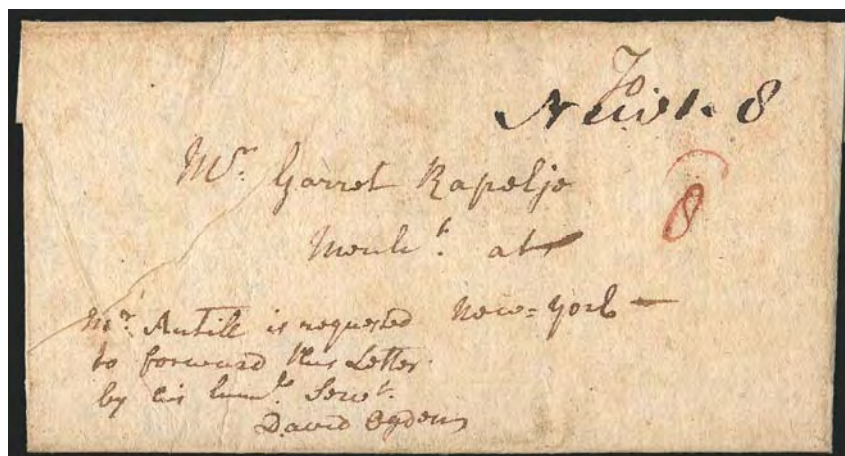 To
New. 8
8
Mr. Garret Rapelje
Merch.t at
New=York
Mr. Antill is requested
to forward this Letter.
by his hum.le Serv.t.
David Ogden